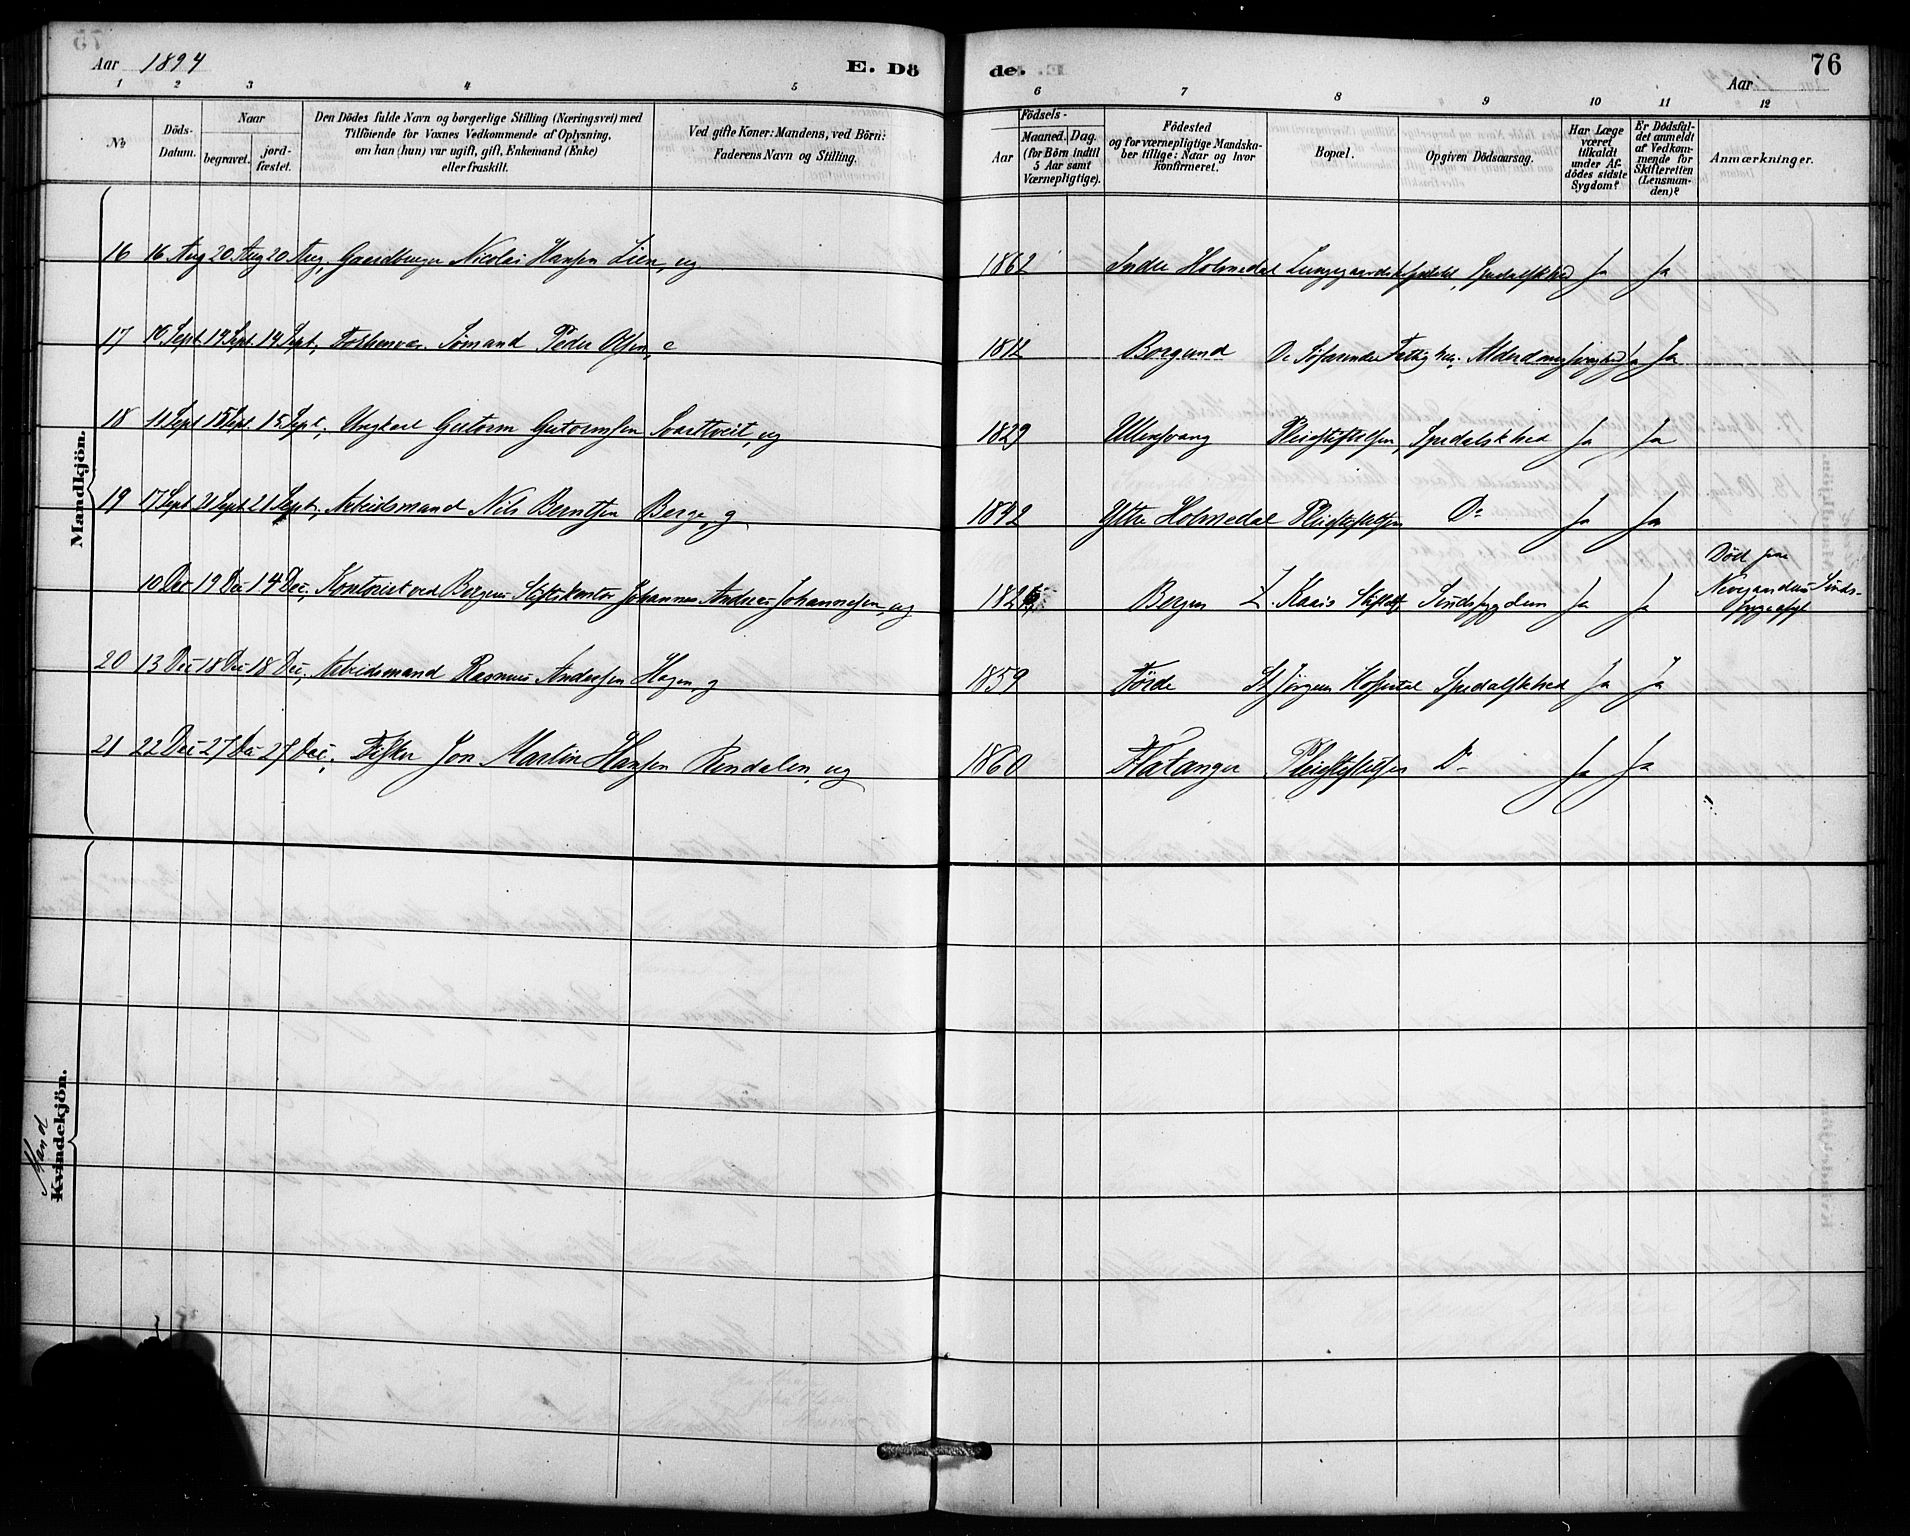 Aar 1894 E. Dö
1 2 3 4 5
№ Döds-Datum. Naar begravet. jord-fæstet. Den Dödes fulde Navn og borgerlige Stilling (Næringsvei) med Tilföiende for Voxnes Vedkommende af Oplysning, om han (hun) var ugift, gift, Enkemand (Enke) eller fraskilt. Ved gifte Koner: Mandens, ved Börn: Faderens Navn og Stilling.
de. 76
Aar
6 7 8 9 10 11 12
Födsels- Aar Maaned. Dag. (for Börn indtil 5 Aar samt Værnepligtige). Födested og for værnepligtige Mandska-ber tillige: Naar og hvor konfirmeret. Bopæl. Opgiven Dödsaarsag. Har Læge været tilkaldt under Af-dödes sidste Sygdom? Er Dödsfal-det anmeldt af Vedkom-mende for Skifteretten (Lensman-den)? Anmærkninger.
Mandkjön.
16 16 Aug 20 Aug 20 Aug, Gaardbruger Nicolai Hansen Lien, ug 1862 Indre Holmedal Lungegaardshospitalet, Spedalskhed Ja Ja
17 10 Sept 14 Sept. 14 Sept, Forhenvær. Sømand Peder Olsen, e 1812 Borgund De Søfarendes Fattighus. Alderdomssvaghed Ja Ja
18 11 Sept 15 Sept. 15 Sept, Ungkarl Guttorm Guttormsen Svartveit, ug 1829 Ullensvang Pleiestiftelsen, Spedalskhed Ja Ja
19 17 Sept 21 Sept 21 Sept, Arbeidsmand Nils Berntsen Berge, g 1842 Ytre Holmedal Pleiestiftelsen Do Ja Ja
10 Dec 19 Dec 14 Dec, Kontorist ved Bergens Stiftskontor Johannes Andreas Johannesen, ug 182 Bergen Z. Kaas's Stiftelse Sindssygdom Ja Ja Død paa Nevengaardens Sinds-sygeasyl
20 13 Dec 18 Dec 18 Dec, Arbeidsmand Rasmus Andersen Hagen, g 1859 Førde St Jørgens Hospital Spedalskhed Ja Ja
21 22 Dec 27 Dec 27 Dec, Fisker Jon Martin Hansen Rendalen, ug 1860 Flatanger Pleiestiftelsen Do Ja Ja
Mand
Kvindekjön.